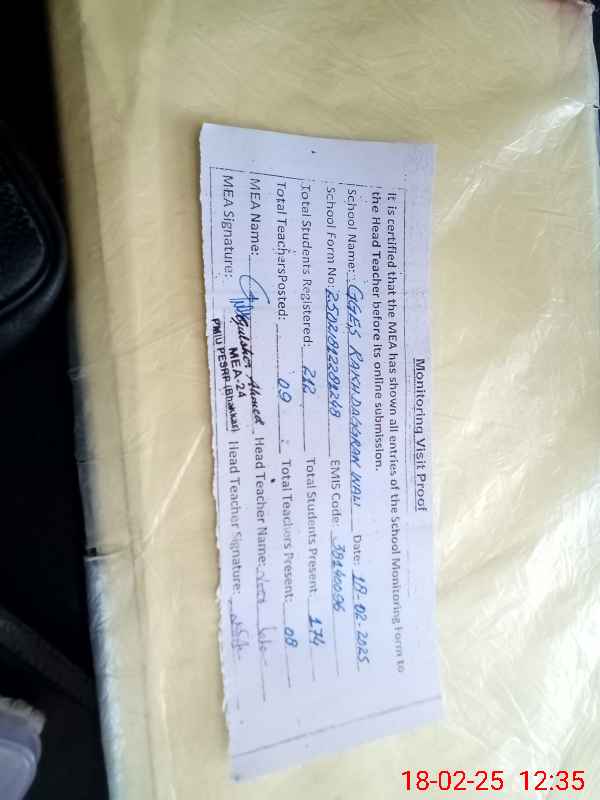 Monitoring Visit Proof
It is certified that the MEA has shown all entries of the School Monitoring Form to
the Head Teacher before its online submission.
School Name: GGES RAKH DAGGRAN WALI Date: 18-02-2025
School Form No: EMIS Code:
Total Students Registered: 212 Total Students Present: 174
Total TeachersPosted: 09 Total Teachers Present: 08
MEA Name: Gulsher Ahmed Head Teacher Name:
MEA-24
MEA Signature: Head Teacher Signature:
PMIU PESRP (Bhakkar)
18-02-25 12:35